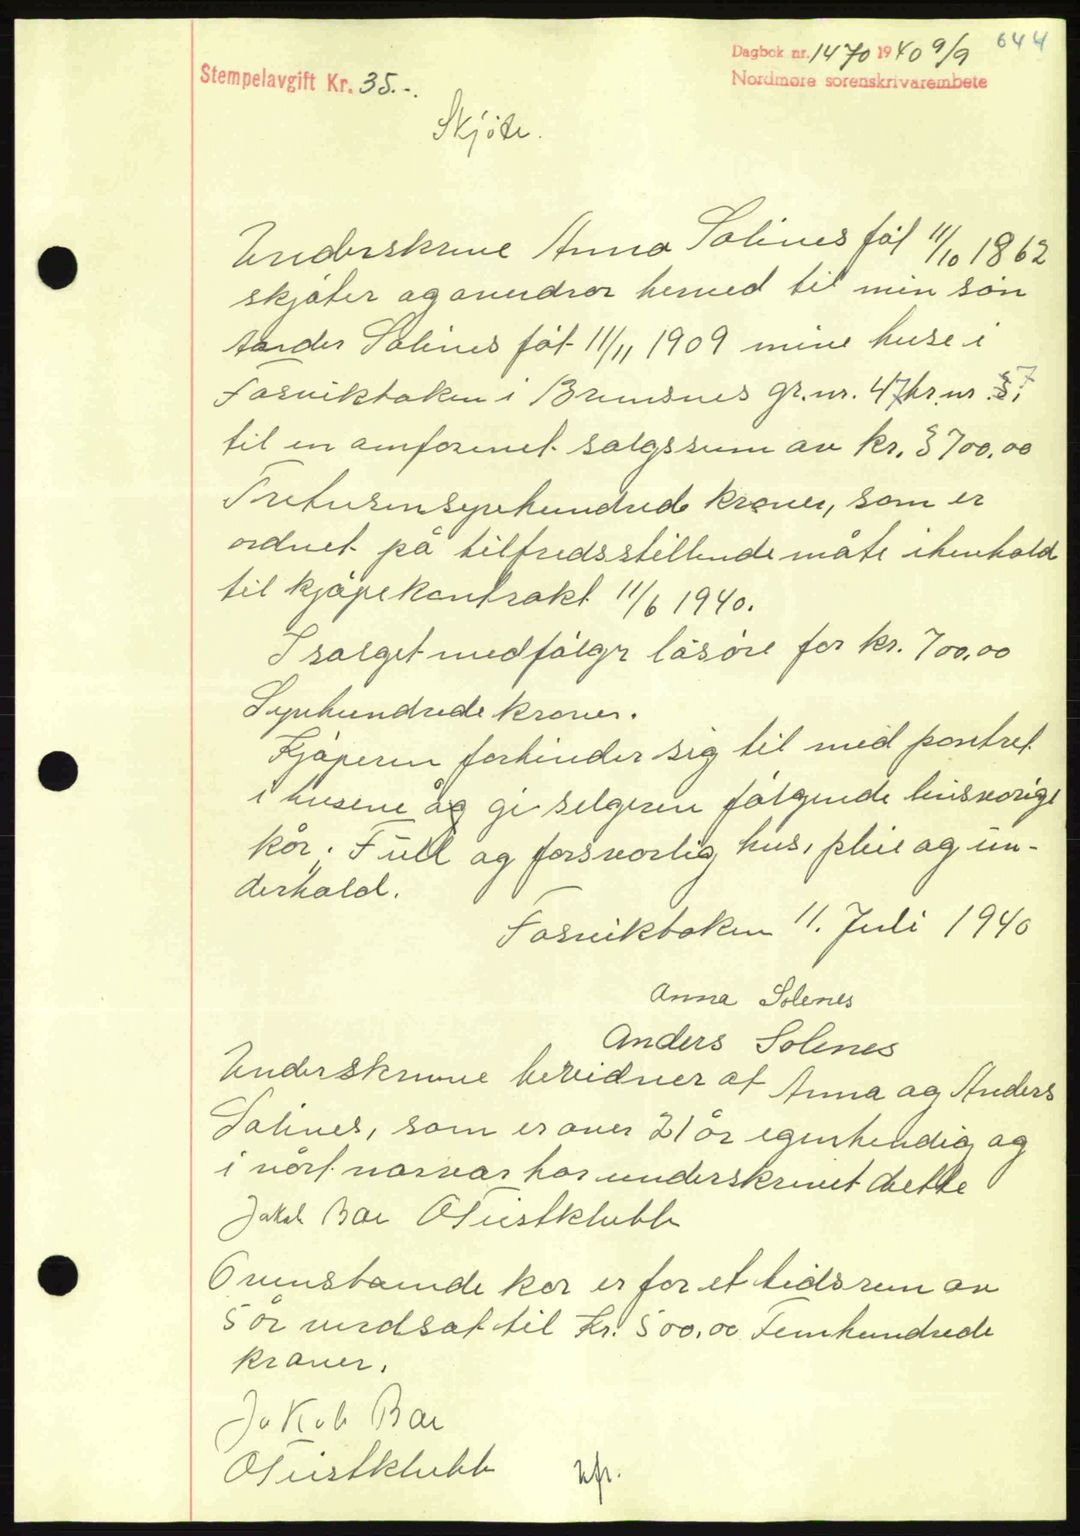 644
Dagbok nr. 1470 1940 9/9
Nordmøre sorenskrivarembete
Stempelavgift Kr. 35.-.
Skjöte.
Underskrevne Anna Solenes föt 11/10 1862
skjöter og overdrar herved til min sön
Anders Solenes föt 11/11 1909 mine huse i
i Bremsnes gr.nr. 47 br nr 7
til en omforenet salgssum av kr. 3700,00
Tretusensyvhundrede kroner, som er
ordnet på tilfredsstillende måte i henhold
til kjöpekontrakt 11/6 1940.
I salget medfölger lösöre for kr. 700,00
Syvhundrede kroner.
Kjöperen forbinder sig til med pantret
i husene og gi selgeren fölgende livsvarige
kår: Full og forsvarlig hus, pleie og un-
derhold.
11. Juli 1940
Anna Solenes
Anders Solenes
Underskrevne bevidner at Anna og Anders
Solenes, som er over 21 år egenhendig og
i vårt nærvær har underskrevet dette
Jakob Bae
Ovenstående kår er for et tidsrum av
5 år verdsat til Kr. 500,00 Femhundrede
kroner.
Jakob Bae